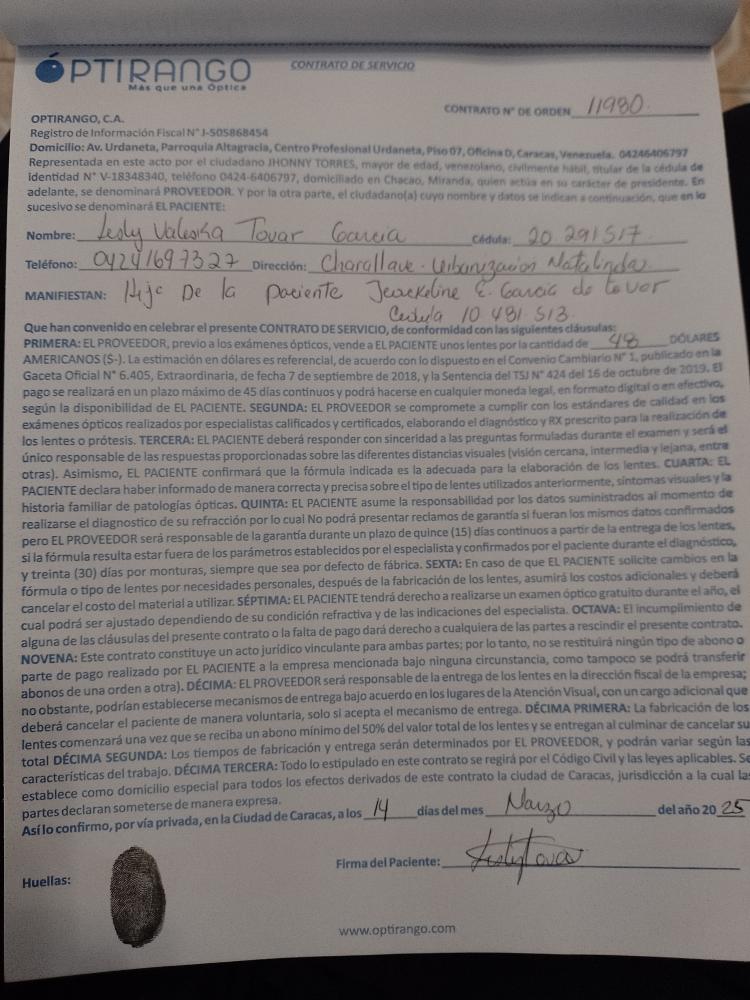 ÓPTIRANGO
Más que una Óptica
CONTRATO DE SERVICIO
CONTRATO N° DE ORDEN 11980.
OPTIRANGO, C.A.
Registro de Información Fiscal N° J-505868454
Domicilio: Av. Urdaneta, Parroquia Altagracia, Centro Profesional Urdaneta, Piso 07, Oficina D, Caracas, Venezuela. 04246406797
Representada en este acto por el ciudadano JHONNY TORRES, mayor de edad, venezolano, civilmente hábil, titular de la cédula de
identidad N° V-18348340, teléfono 0424-6406797, domiciliado en Chacao, Miranda, quien actúa en su carácter de presidente. En
adelante, se denominará PROVEEDOR. Y por la otra parte, el ciudadano(a) cuyo nombre y datos se indican a continuación, que en lo
sucesivo se denominará EL PACIENTE:
Nombre: Lesly Valeska Tovar Garcia Cédula: 20.291517.
Teléfono: 04241697327 Dirección: Charallave. Urbanizacion Matalinda.
MANIFIESTAN: Hija De la paciente Jeackeline E. Garcia de tovar
Cedula 10 481.513.
Que han convenido en celebrar el presente CONTRATO DE SERVICIO, de conformidad con las siguientes cláusulas:
PRIMERA: EL PROVEEDOR, previo a los exámenes ópticos, vende a EL PACIENTE unos lentes por la cantidad de 48 DÓLARES
AMERICANOS ($-). La estimación en dólares es referencial, de acuerdo con lo dispuesto en el Convenio Cambiario N° 1, publicado en la
Gaceta Oficial N° 6.405, Extraordinaria, de fecha 7 de septiembre de 2018, y la Sentencia del TSJ N° 424 del 16 de octubre de 2019. El
pago se realizará en un plazo máximo de 45 días continuos y podrá hacerse en cualquier moneda legal, en formato digital o en efectivo,
según la disponibilidad de EL PACIENTE. SEGUNDA: EL PROVEEDOR se compromete a cumplir con los estándares de calidad en los
exámenes ópticos realizados por especialistas calificados y certificados, elaborando el diagnóstico y RX prescrito para la realización de
los lentes o prótesis. TERCERA: EL PACIENTE deberá responder con sinceridad a las preguntas formuladas durante el examen y será el
único responsable de las respuestas proporcionadas sobre las diferentes distancias visuales (visión cercana, intermedia y lejana, entre
otras). Asimismo, EL PACIENTE confirmará que la fórmula indicada es la adecuada para la elaboración de los lentes. CUARTA: EL
PACIENTE declara haber informado de manera correcta y precisa sobre el tipo de lentes utilizados anteriormente, síntomas visuales y la
historia familiar de patologías ópticas. QUINTA: EL PACIENTE asume la responsabilidad por los datos suministrados al momento de
realizarse el diagnostico de su refracción por lo cual No podrá presentar reclamos de garantía si fueran los mismos datos confirmados
pero EL PROVEEDOR será responsable de la garantía durante un plazo de quince (15) días continuos a partir de la entrega de los lentes,
si la fórmula resulta estar fuera de los parámetros establecidos por el especialista y confirmados por el paciente durante el diagnóstico,
y treinta (30) días por monturas, siempre que sea por defecto de fábrica. SEXTA: En caso de que EL PACIENTE solicite cambios en la
fórmula o tipo de lentes por necesidades personales, después de la fabricación de los lentes, asumirá los costos adicionales y deberá
cancelar el costo del material a utilizar. SÉPTIMA: EL PACIENTE tendrá derecho a realizarse un examen óptico gratuito durante el año, el
cual podrá ser ajustado dependiendo de su condición refractiva y de las indicaciones del especialista. OCTAVA: El incumplimiento de
alguna de las cláusulas del presente contrato o la falta de pago dará derecho a cualquiera de las partes a rescindir el presente contrato.
NOVENA: Este contrato constituye un acto jurídico vinculante para ambas partes; por lo tanto, no se restituirá ningún tipo de abono o
parte de pago realizado por EL PACIENTE a la empresa mencionada bajo ninguna circunstancia, como tampoco se podrá transferir
abonos de una orden a otra). DÉCIMA: EL PROVEEDOR será responsable de la entrega de los lentes en la dirección fiscal de la empresa;
no obstante, podrían establecerse mecanismos de entrega bajo acuerdo en los lugares de la Atención Visual, con un cargo adicional que
deberá cancelar el paciente de manera voluntaria, solo si acepta el mecanismo de entrega. DÉCIMA PRIMERA: La fabricación de los
lentes comenzará una vez que se reciba un abono mínimo del 50% del valor total de los lentes y se entregan al culminar de cancelar su
total DÉCIMA SEGUNDA: Los tiempos de fabricación y entrega serán determinados por EL PROVEEDOR, y podrán variar según las
características del trabajo. DÉCIMA TERCERA: Todo lo estipulado en este contrato se regirá por el Código Civil y las leyes aplicables. Se
establece como domicilio especial para todos los efectos derivados de este contrato la ciudad de Caracas, jurisdicción a la cual las
partes declaran someterse de manera expresa.
Así lo confirmo, por vía privada, en la Ciudad de Caracas, a los 14 días del mes Marzo del año 20 25
Firma del Paciente: Lesly Tovar
Huellas:
www.optirango.com